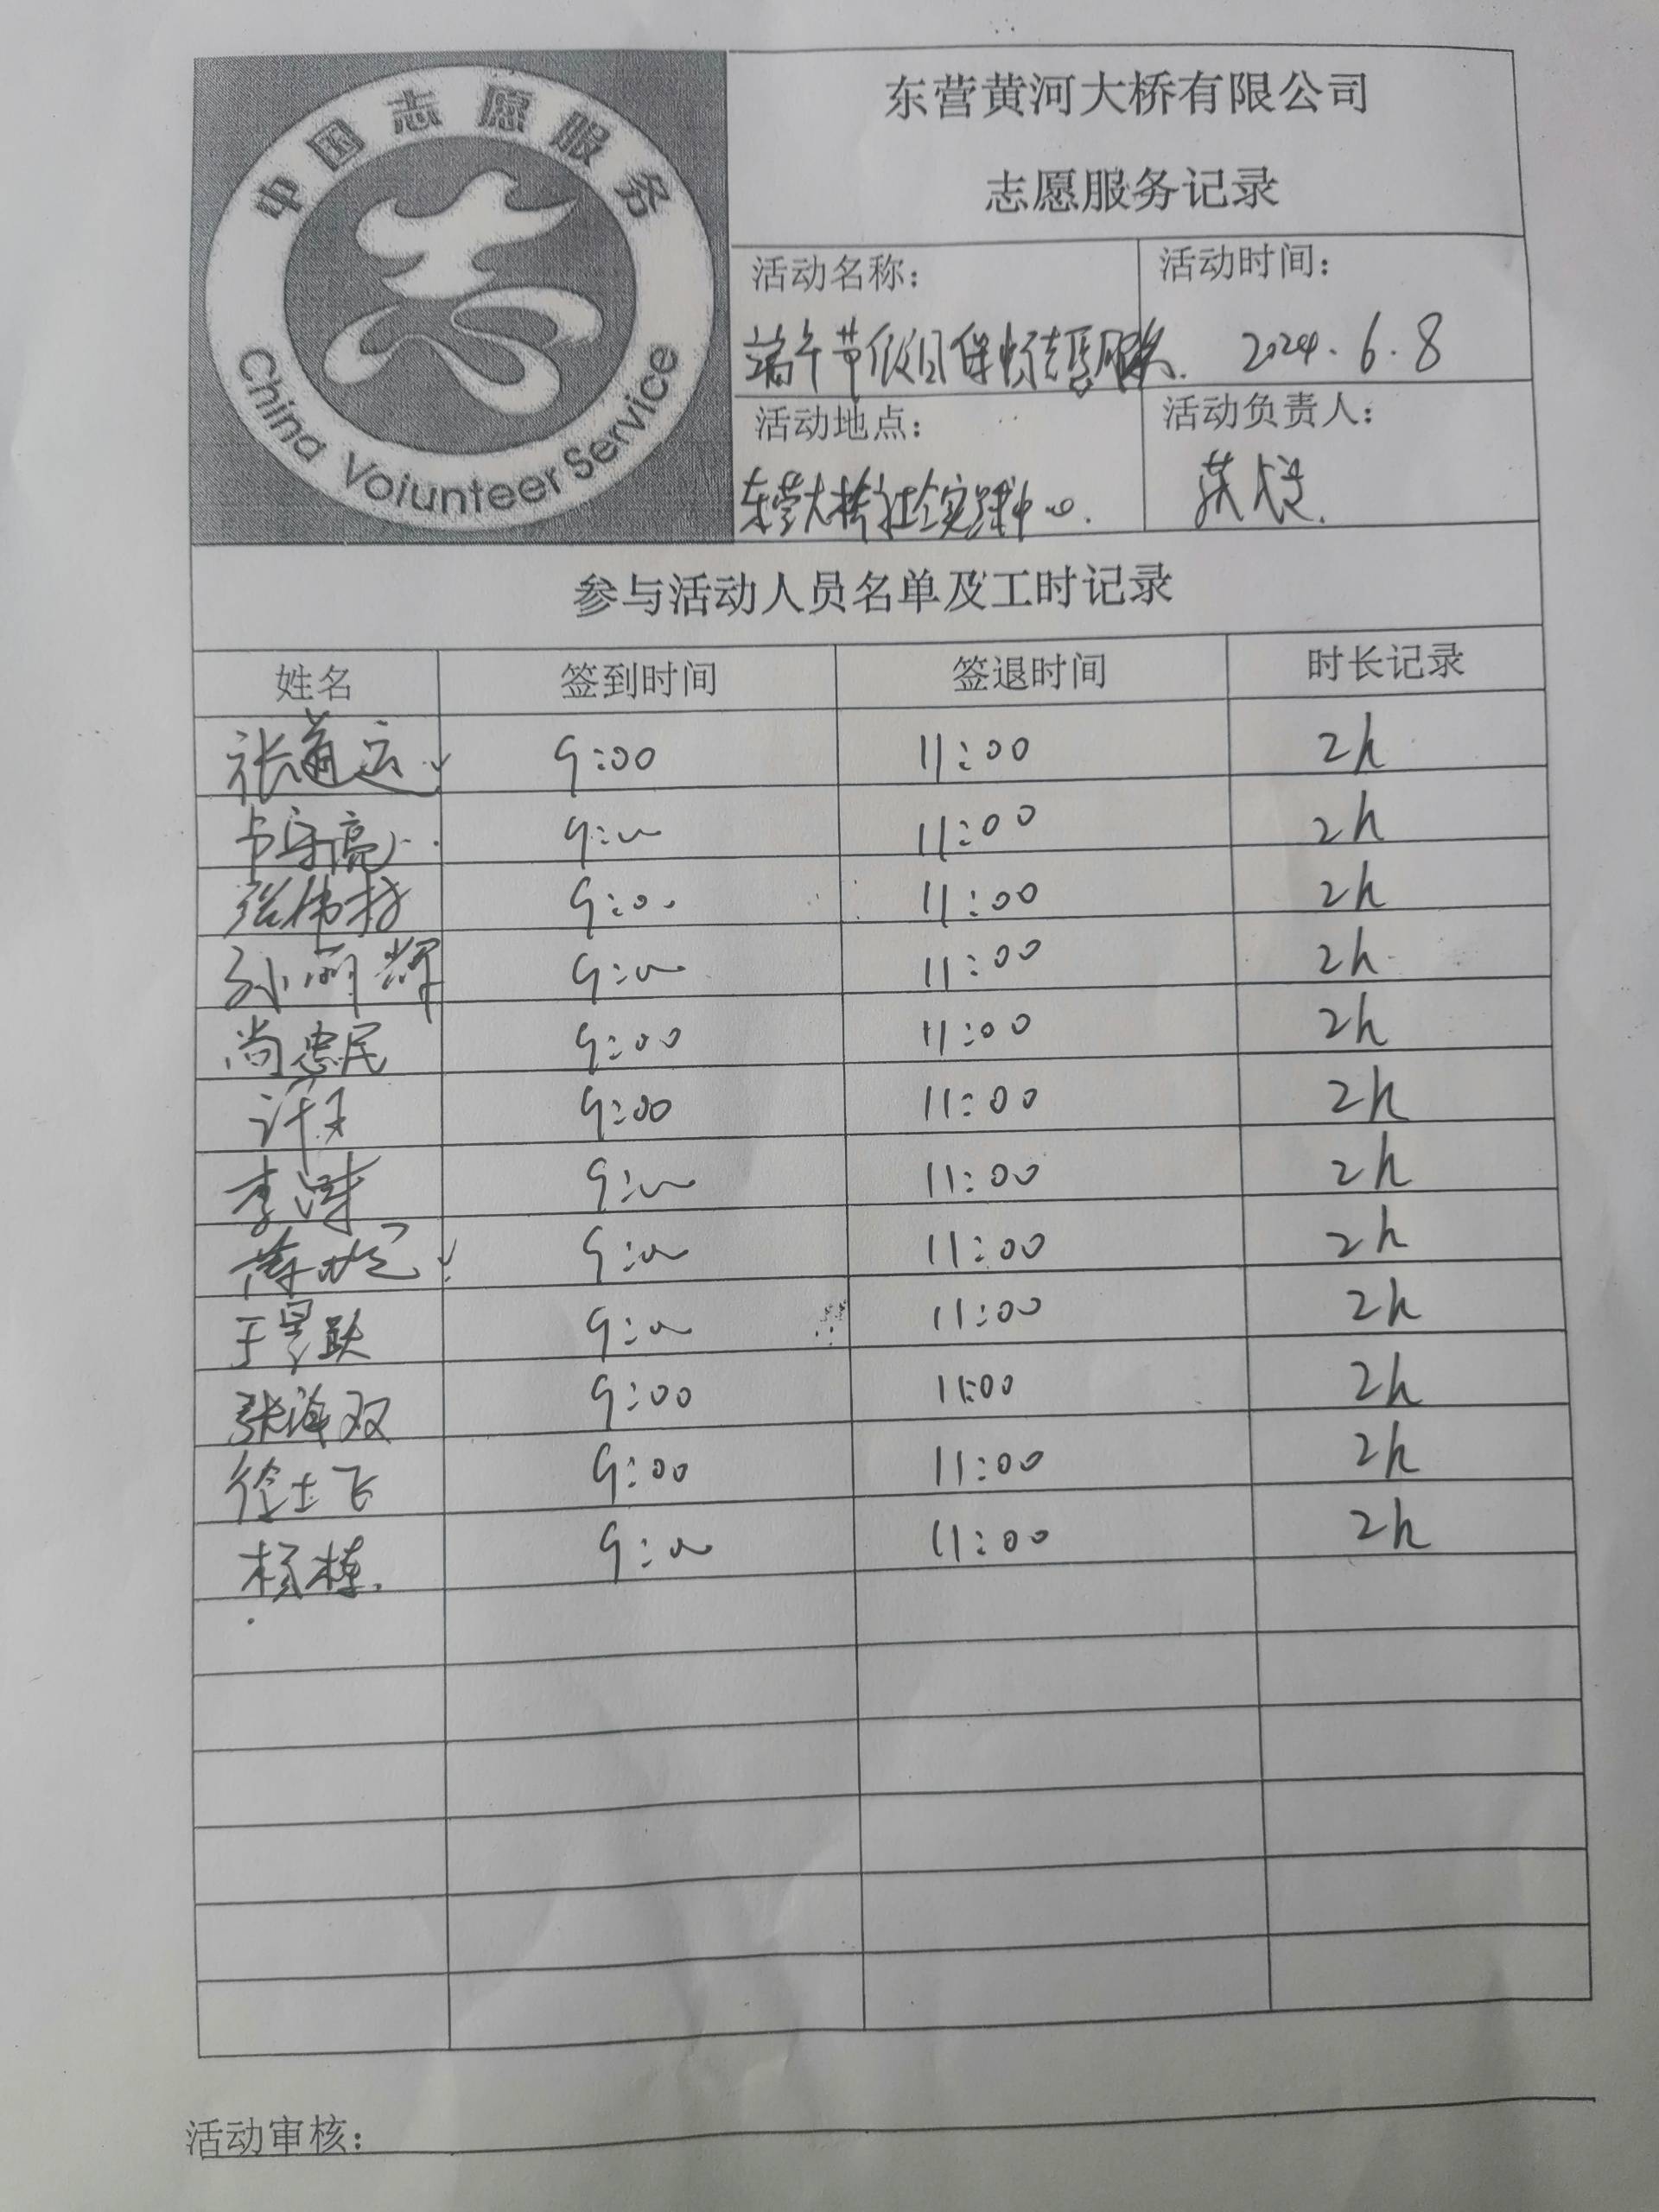 中国志愿服务
China Volunteer Service
东营黄河大桥有限公司
志愿服务记录
活动名称：
端午节假日保畅志愿服务.
活动时间：
2024.6.8
活动地点：
东营大桥社会实践中心.
活动负责人：
参与活动人员名单及工时记录
姓名 签到时间 签退时间 时长记录
张道云 9:00 11:00 2h
卢守亮 9:00 11:00 2h
张伟村 9:00 11:00 2h
孙丽辉 9:00 11:00 2h
尚忠民 9:00 11:00 2h
许 9:00 11:00 2h
李涛 9:00 11:00 2h
9:00 11:00 2h
于昊跃 9:00 11:00 2h
张海双 9:00 11:00 2h
徐士飞 9:00 11:00 2h
杨栋. 9:00 11:00 2h
活动审核：